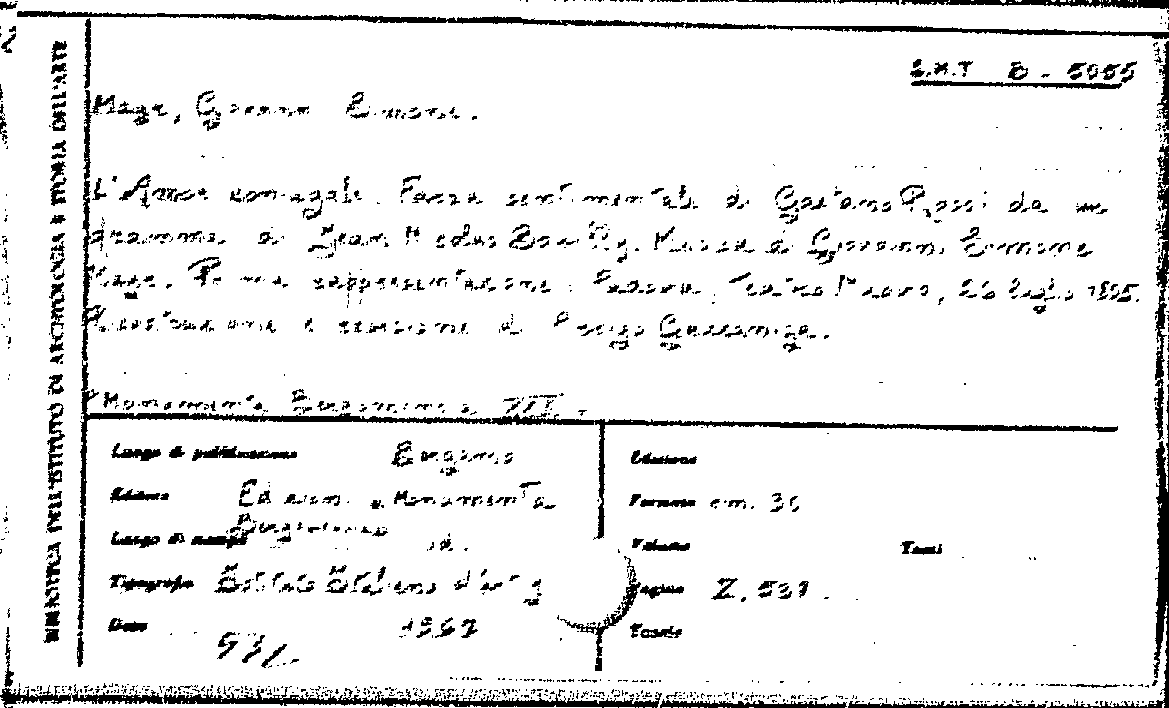 BIBLIOTECA DELL'ISTITUTO DI ARCHEOLOGIA E STORIA DELL'ARTE
B - 5055
Mayr, Giovanni Simone.
L'Amor coniugale. Farsa sentimentale di Gaetano Rossi da un
dramma di Jean Nicolas Bouilly. Musica di Giovanni Simone
Mayr. Prima rappresentazione: Padova, Teatro Nuovo, 26 luglio 1805.
Ricostruzione e revisione di Gavazzeni.
"Monumenta Bergomensia XXII".
Luogo di pubblicazione Bergamo
Editore Edizioni "Monumenta
Bergomensia"
Luogo di stampa id.
Tipografia Istituto Italiano d'Arti g
Data 1967
Edizione
Formato cm. 36
Volume Tomi
Pagine Z, 537.
Tavole